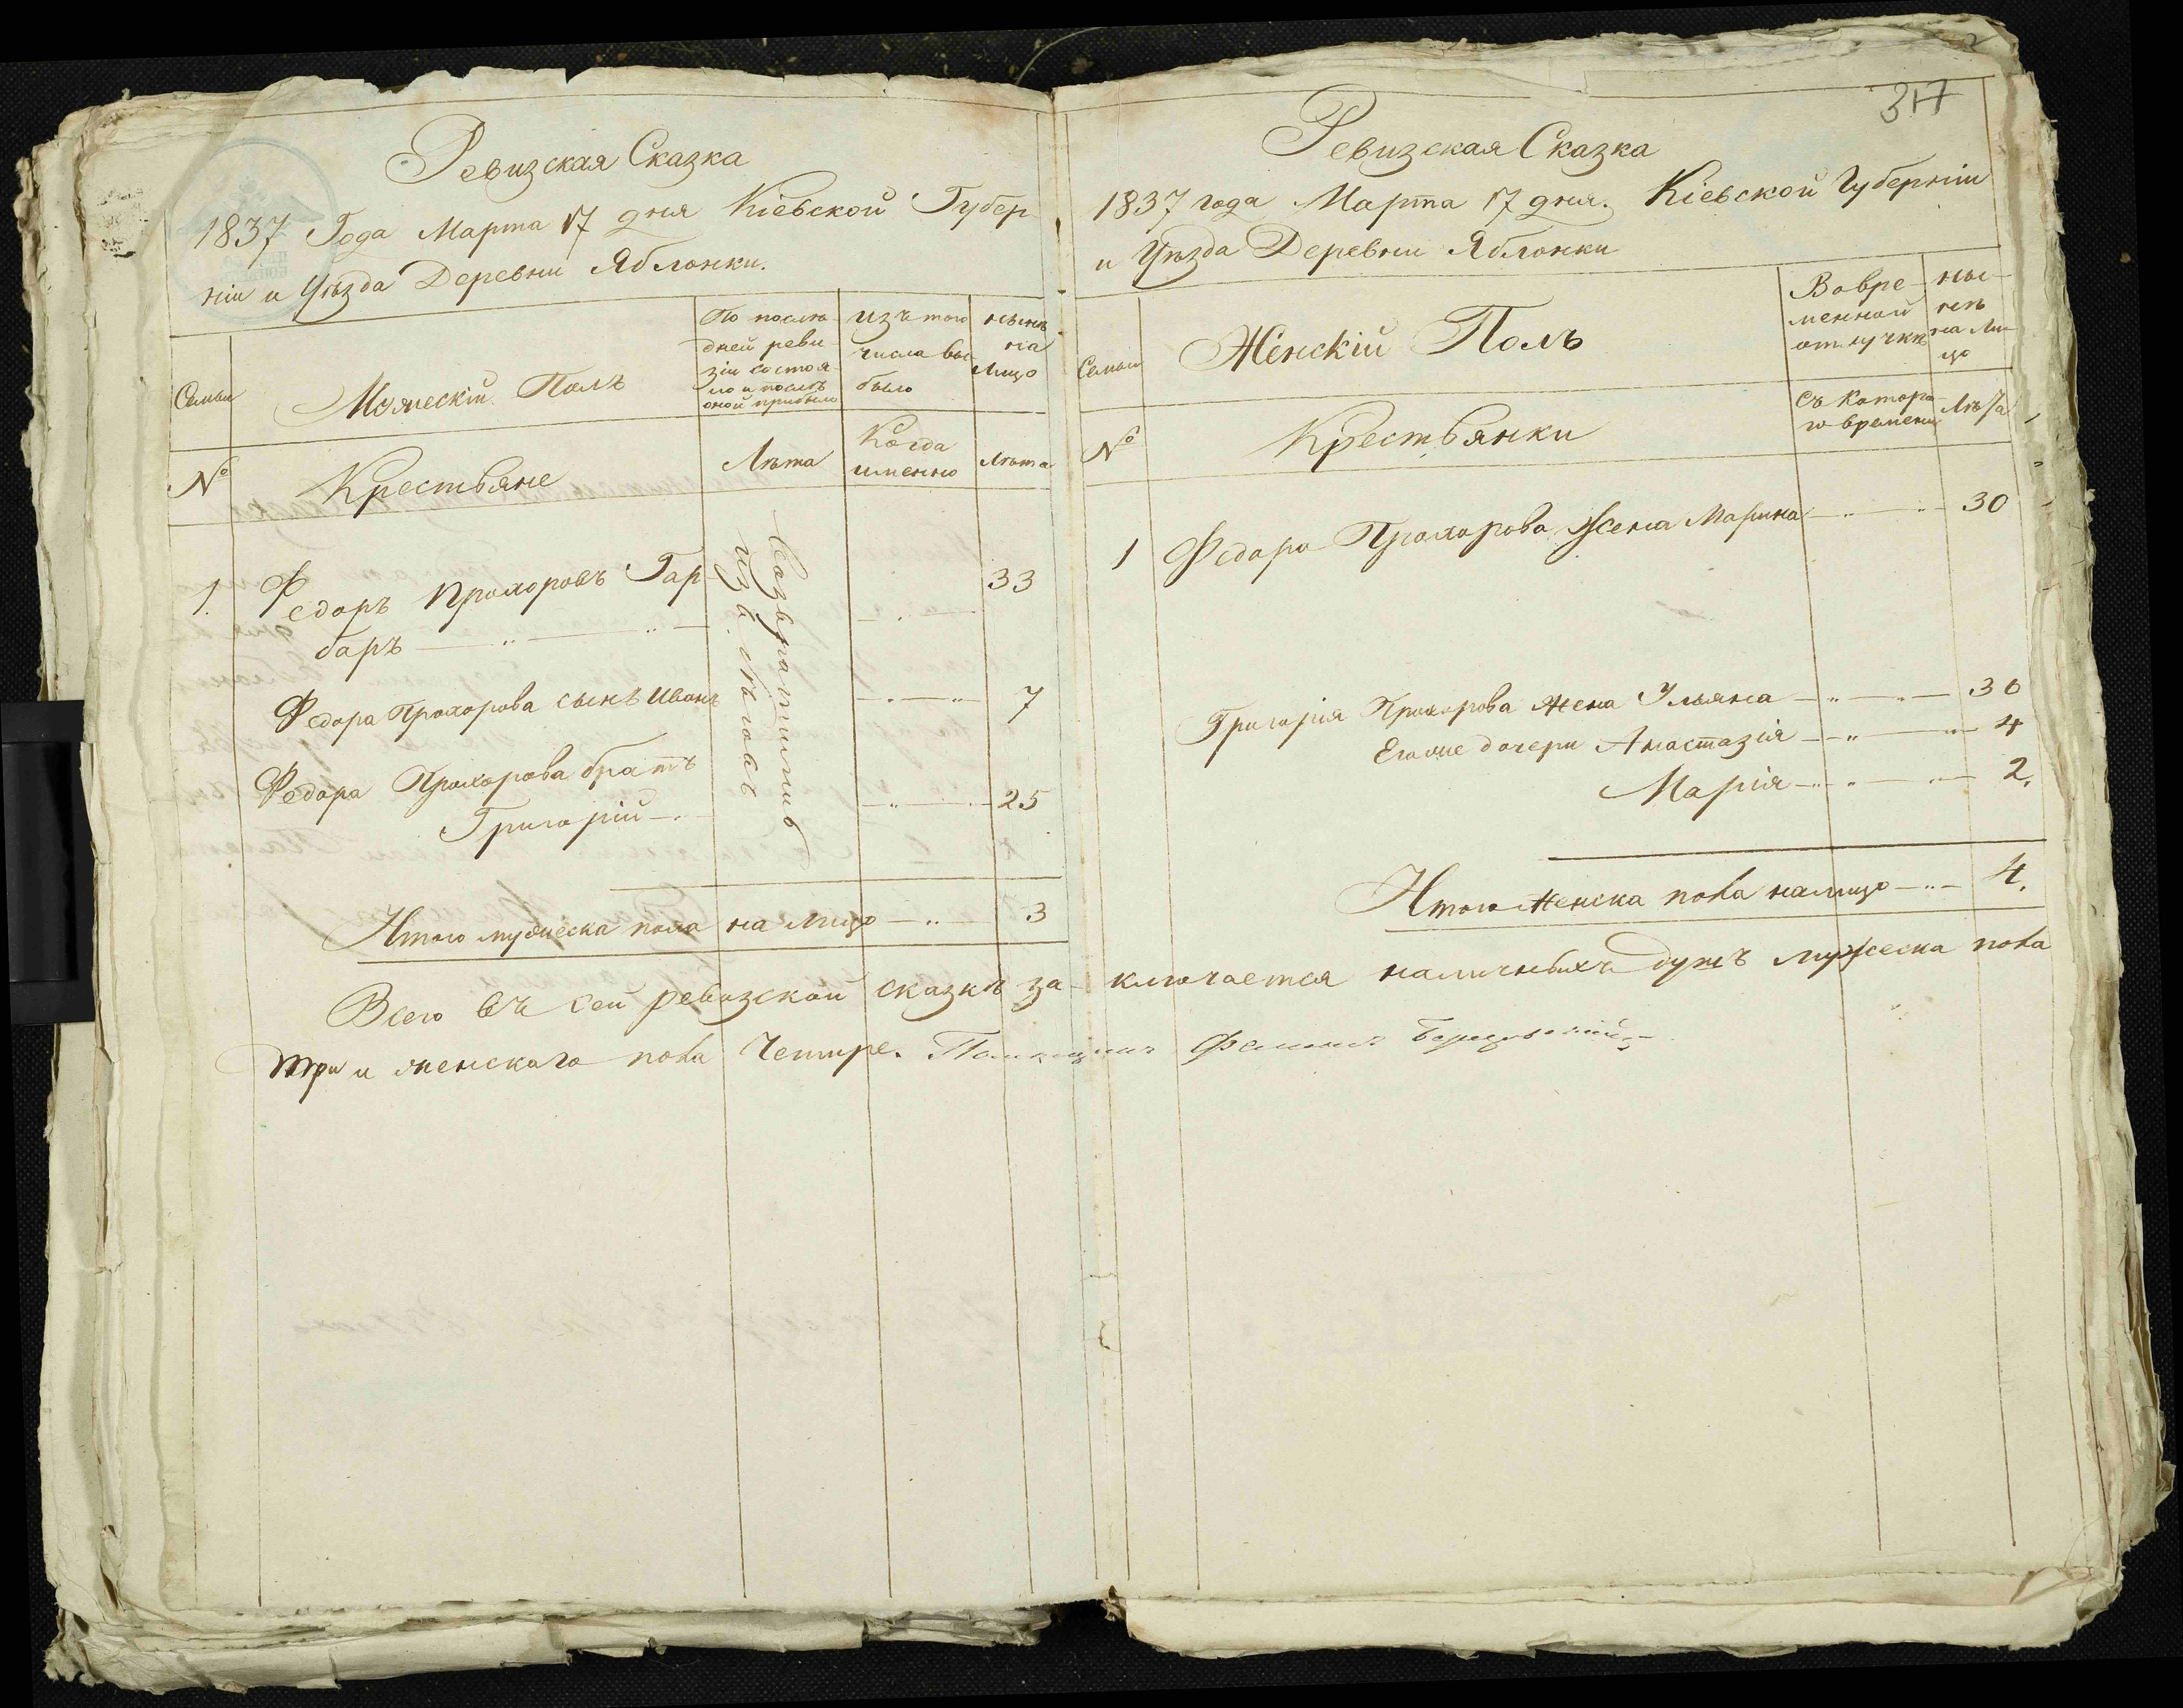 Ревизская Сказка
1837 Года Марта 17 дня Кіевской Губер
ніи и Уѣзда Деревни Яблонки.
Семьи
Мужескій Полъ
По послѣ
дней реви
зіи состоя
ло и послѣ
оной прибыло
изъ того
числа вы
было
нынѣ
на
Лицо
№
Крестьяне
Лѣта
Когда
именно
Лѣта
1.
Федоръ Прохоровъ Гар
баръ
33
Федора Прохорова сынъ Иванъ
7
Федора Прохорова братъ
Григорій
25
Возвратились
изъ бѣговъ
Итого мужеска пола на лицо 3
317
Ревизская Сказка
1837 года Марта 17 дня. Кіевской Губерніи
и Уѣзда Деревни Яблонки
Семьи
Женскій Полъ
Вовре
менной
отлучкѣ
ны
нѣ
на Ли
цо
№
Крестьянки
съ которо
го времени
Лѣта
1 Федора Прохорова Жена Марина 30
Григорія Прохорова жена Ульяна 30
Его же дочери Анастазія 4
Марія 2.
Итого женска пола налицо 4.
Всего въ сей ревизской сказкѣ за ключается наличныхъ душъ мужеска пола
три и женскаго пола Четыре. Помещикъ